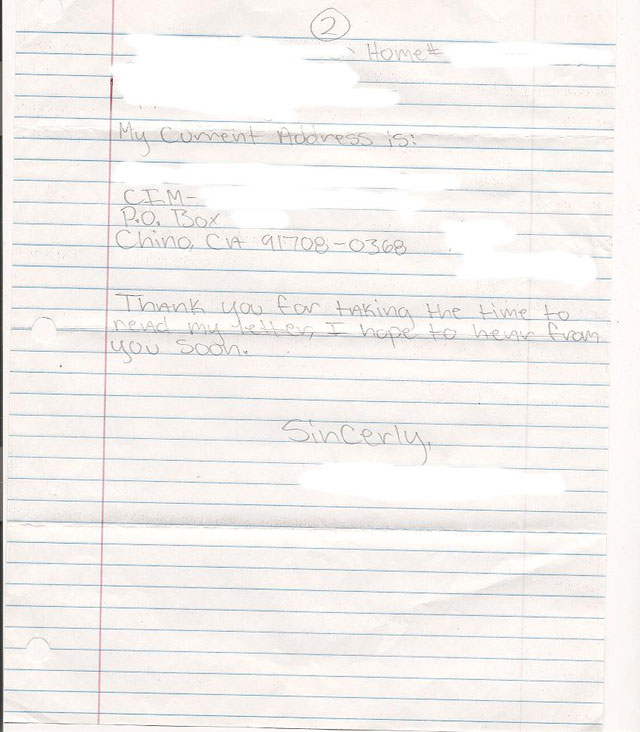 2
Home#
My Current Address is:
CIM-
P.O. Box
Chino, CA 91708-0368
Thank you for taking the time to
read my letter, I hope to hear from
you soon.
Sincerly,